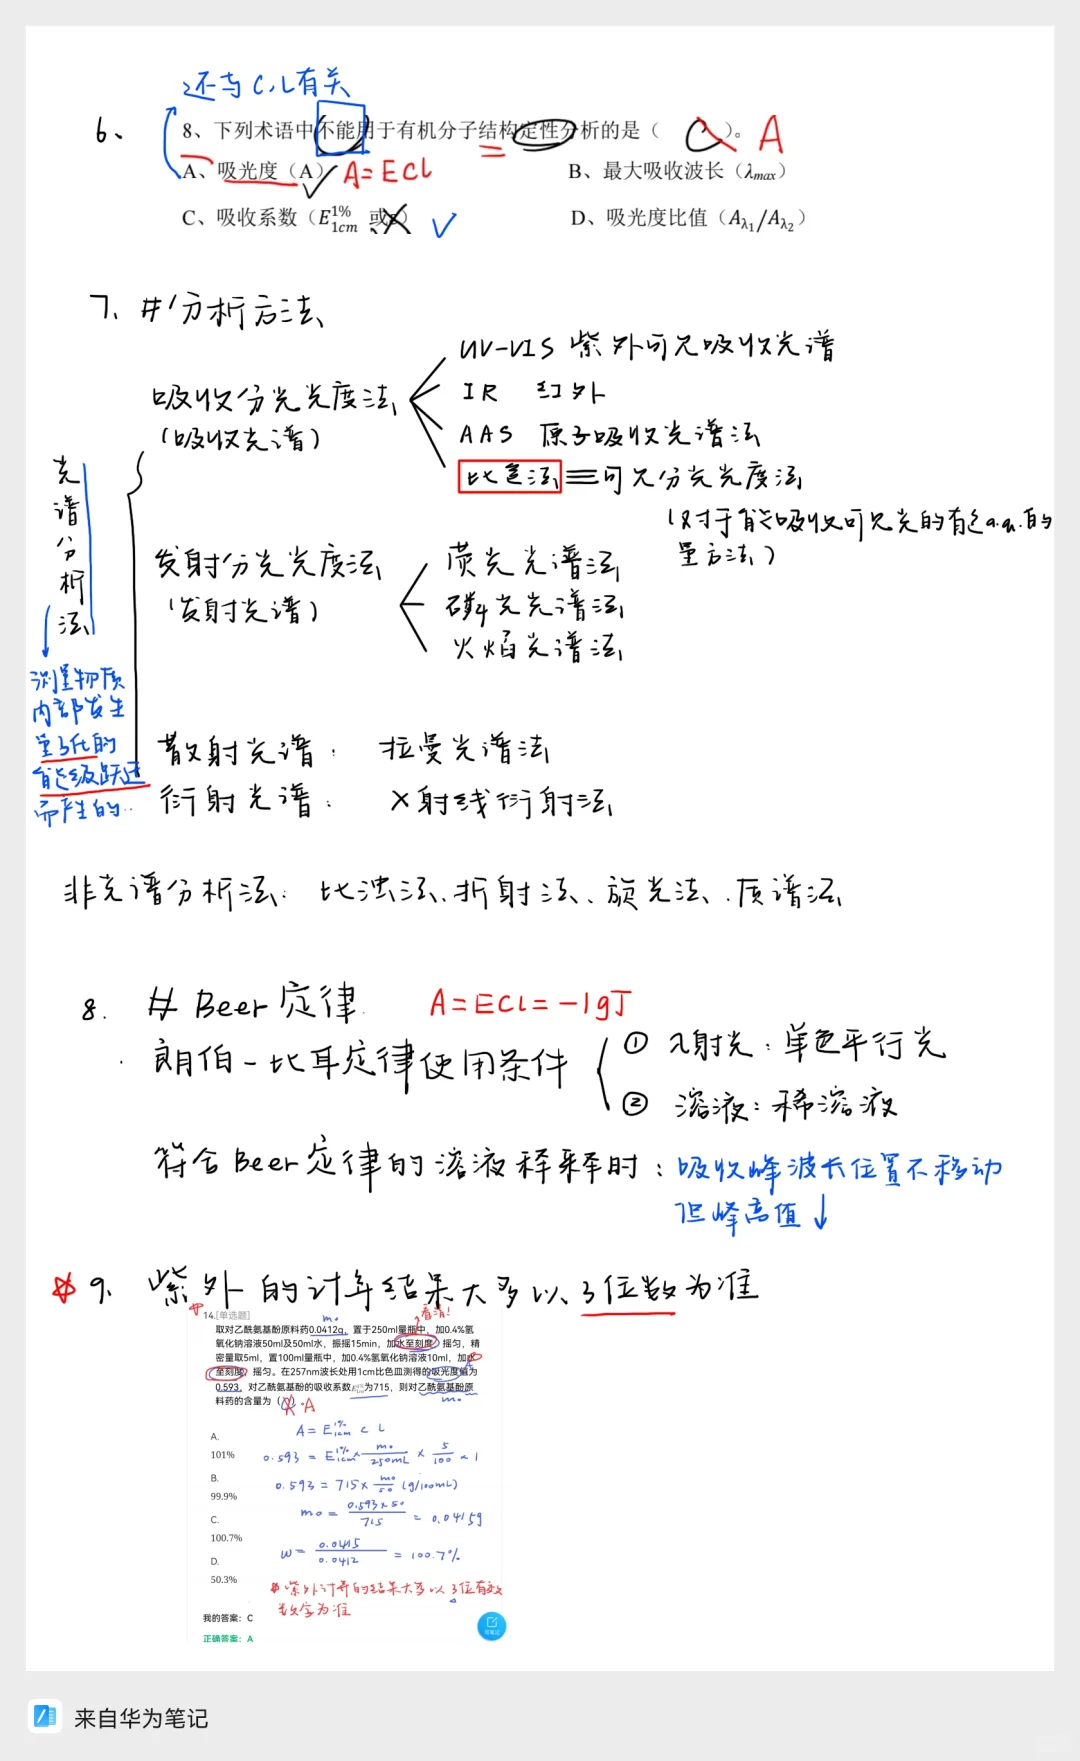 还与C,L有关
6、
8、下列术语中不能用于有机分子结构定性分析的是( C )。 A
A、吸光度（A） A=ECL
B、最大吸收波长（λmax）
C、吸收系数（E1%1cm 或ε）
D、吸光度比值（Aλ1/Aλ2）
7、#分析方法
光谱分析法
测量物质内部发生量子化的能级跃迁而产生的..
吸收分光光度法
（吸收光谱）
UV-VIS 紫外可见吸收光谱
IR 红外
AAS 原子吸收光谱法
比色法≡可见分光光度法
（对于能吸收可见光的有色a.q.的
量方法）
发射分光光度法
（发射光谱）
荧光光谱法
磷光光谱法
火焰光谱法
散射光谱： 拉曼光谱法
衍射光谱： X射线衍射法
非光谱分析法: 比浊法、折射法、旋光法、质谱法
8. # Beer定律. A=ECL=-lgT
朗伯-比耳定律使用条件
① 入射光：单色平行光
② 溶液：稀溶液
符合Beer定律的溶液稀释时：吸收峰波长位置不移动
但峰高值↓
9、紫外的计算结果大多以3位数为准
14.[单选题]
m₀
看清！
取对乙酰氨基酚原料药0.0412g，置于250ml量瓶中，加0.4%氢
氧化钠溶液50ml及50ml水，振摇15min，加水至刻度，摇匀，精
密量取5ml，置100ml量瓶中，加0.4%氢氧化钠溶液10ml，加水
至刻度，摇匀。在257nm波长处用1cm比色皿测得的吸光度值为
0.593，对乙酰氨基酚的吸收系数E1%1cm为715，则对乙酰氨基酚原
料药的含量为（ ）。 A
m₀
A.
101%
B.
99.9%
C.
100.7%
D.
50.3%
A = E1%1cm C L
0.593 = E1%1cm × m₀/250mL × 5/100 × 1
0.593 = 715 × m₀/50 (g/100mL)
m₀ = 0.593×50/715 = 0.0415g
w = 0.0415/0.0412 = 100.7%
紫外计算的结果大多以3位有效
数字为准
我的答案：C
正确答案：A
写笔记
来自华为笔记